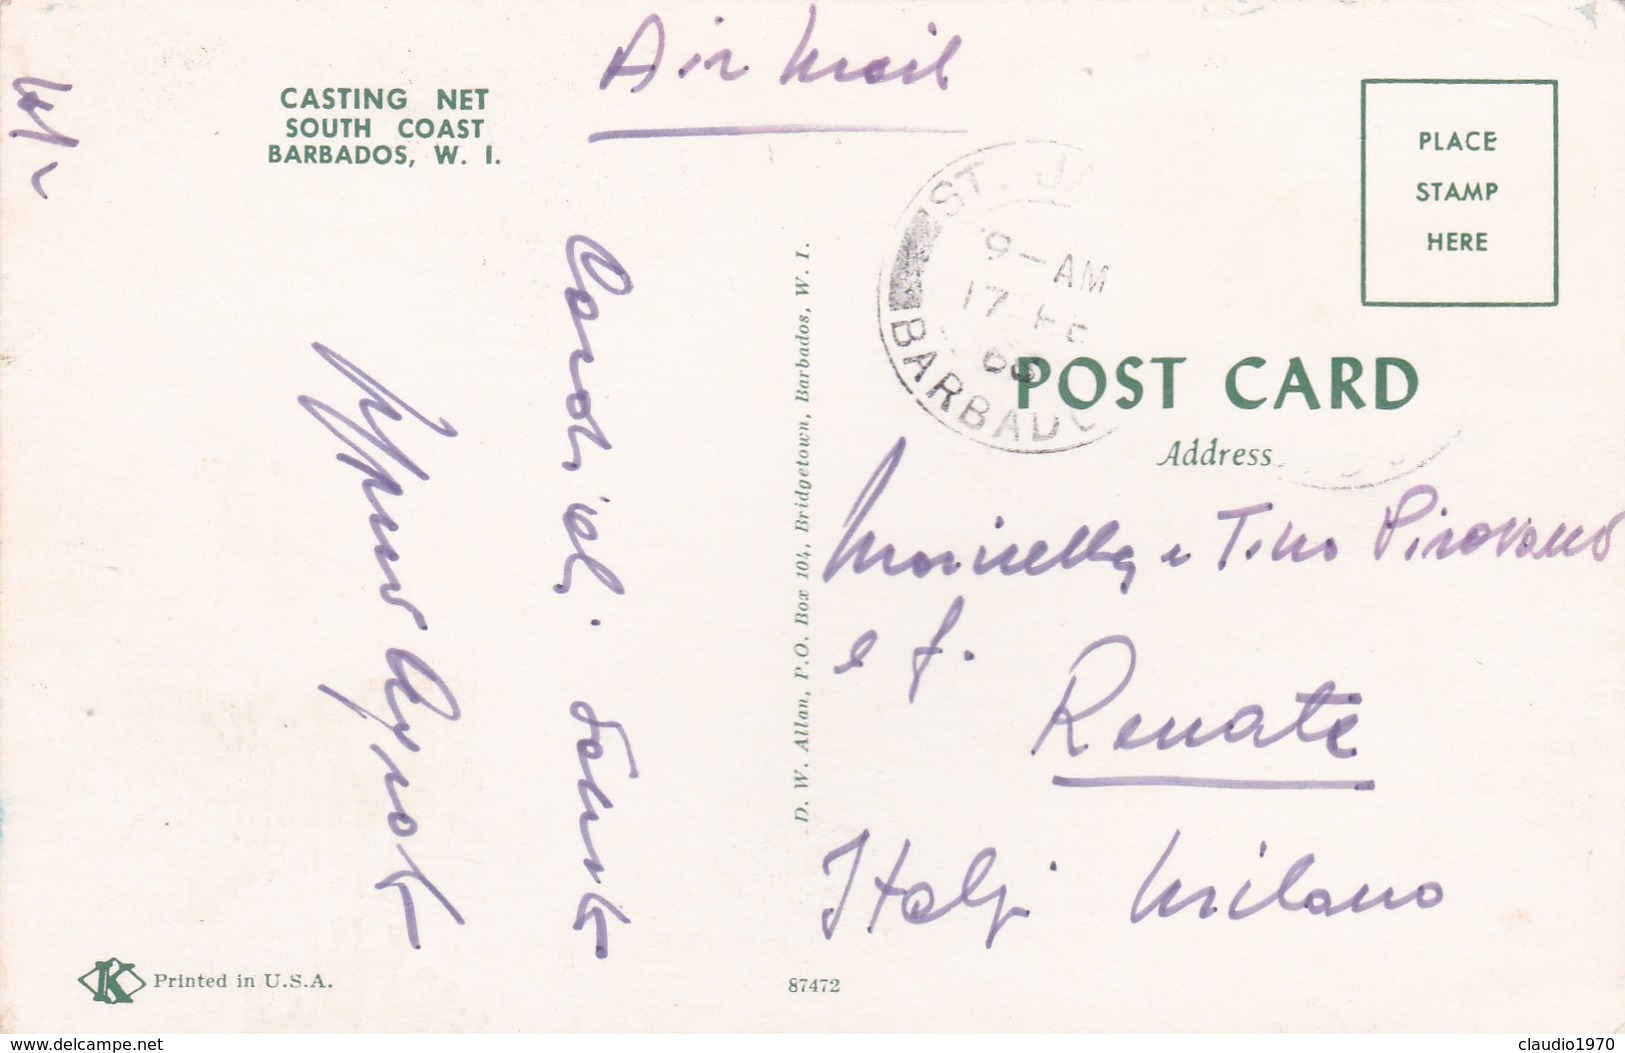 Air Mail
CASTING NET
SOUTH COAST
BARBADOS, W. I.
PLACE
STAMP
HERE
ST. JA
9-AM
17 FE
BARBADO
POST CARD
Address
Cordiali saluti
D. W. Allan, P.O. Box 104, Bridgetown, Barbados, W. I.
e Tino Pirovano
e f.
Renate
Italy Milano
K Printed in U.S.A.
87472
www.delcampe.net
claudio1970